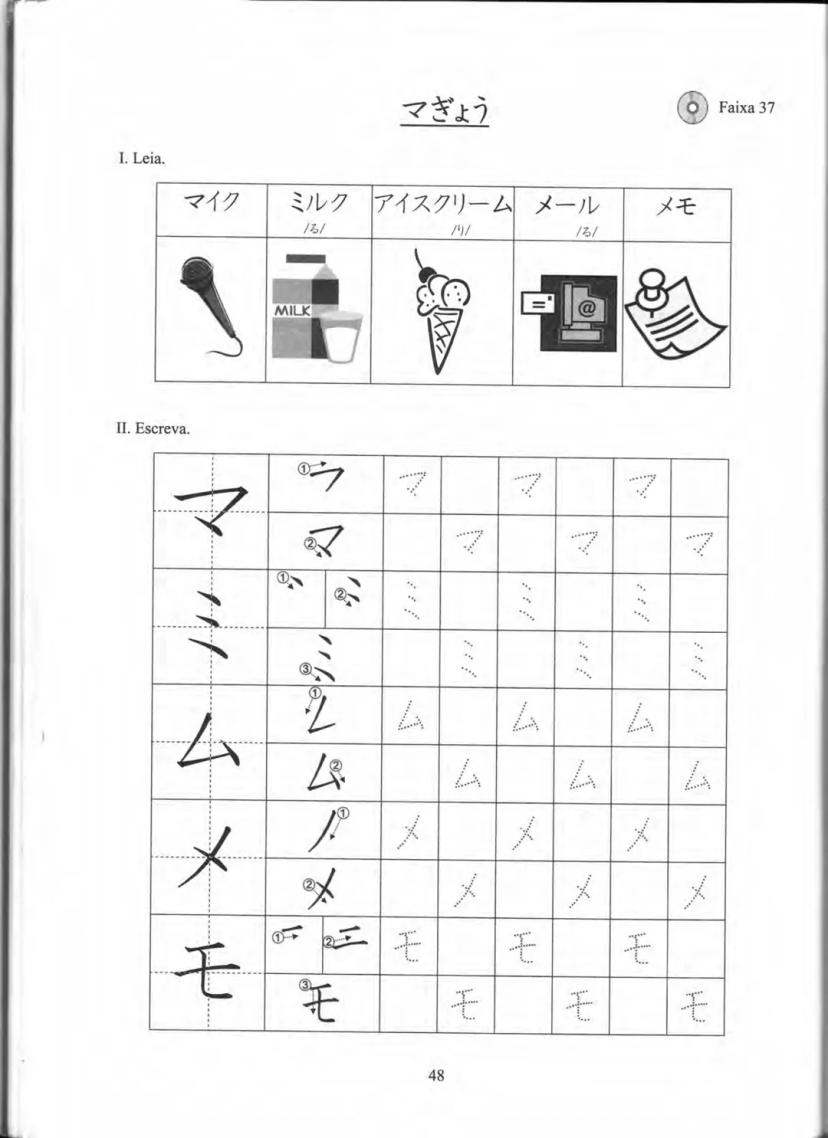 マぎょう
Faixa 37
I. Leia.
マイク ミルク アイスクリーム メール メモ
/る/ /り/ /る/
MILK
@
II. Escreva.
マ ① フ マ マ マ
② マ マ マ マ
ミ ① ② ミ ミ ミ
③ ミ ミ ミ ミ
ム ① ム ム ム
② ム ム ム ム
メ ① ノ メ メ メ
② メ メ メ メ
モ ① 一 ② 二 モ モ モ
③ モ モ モ モ
48